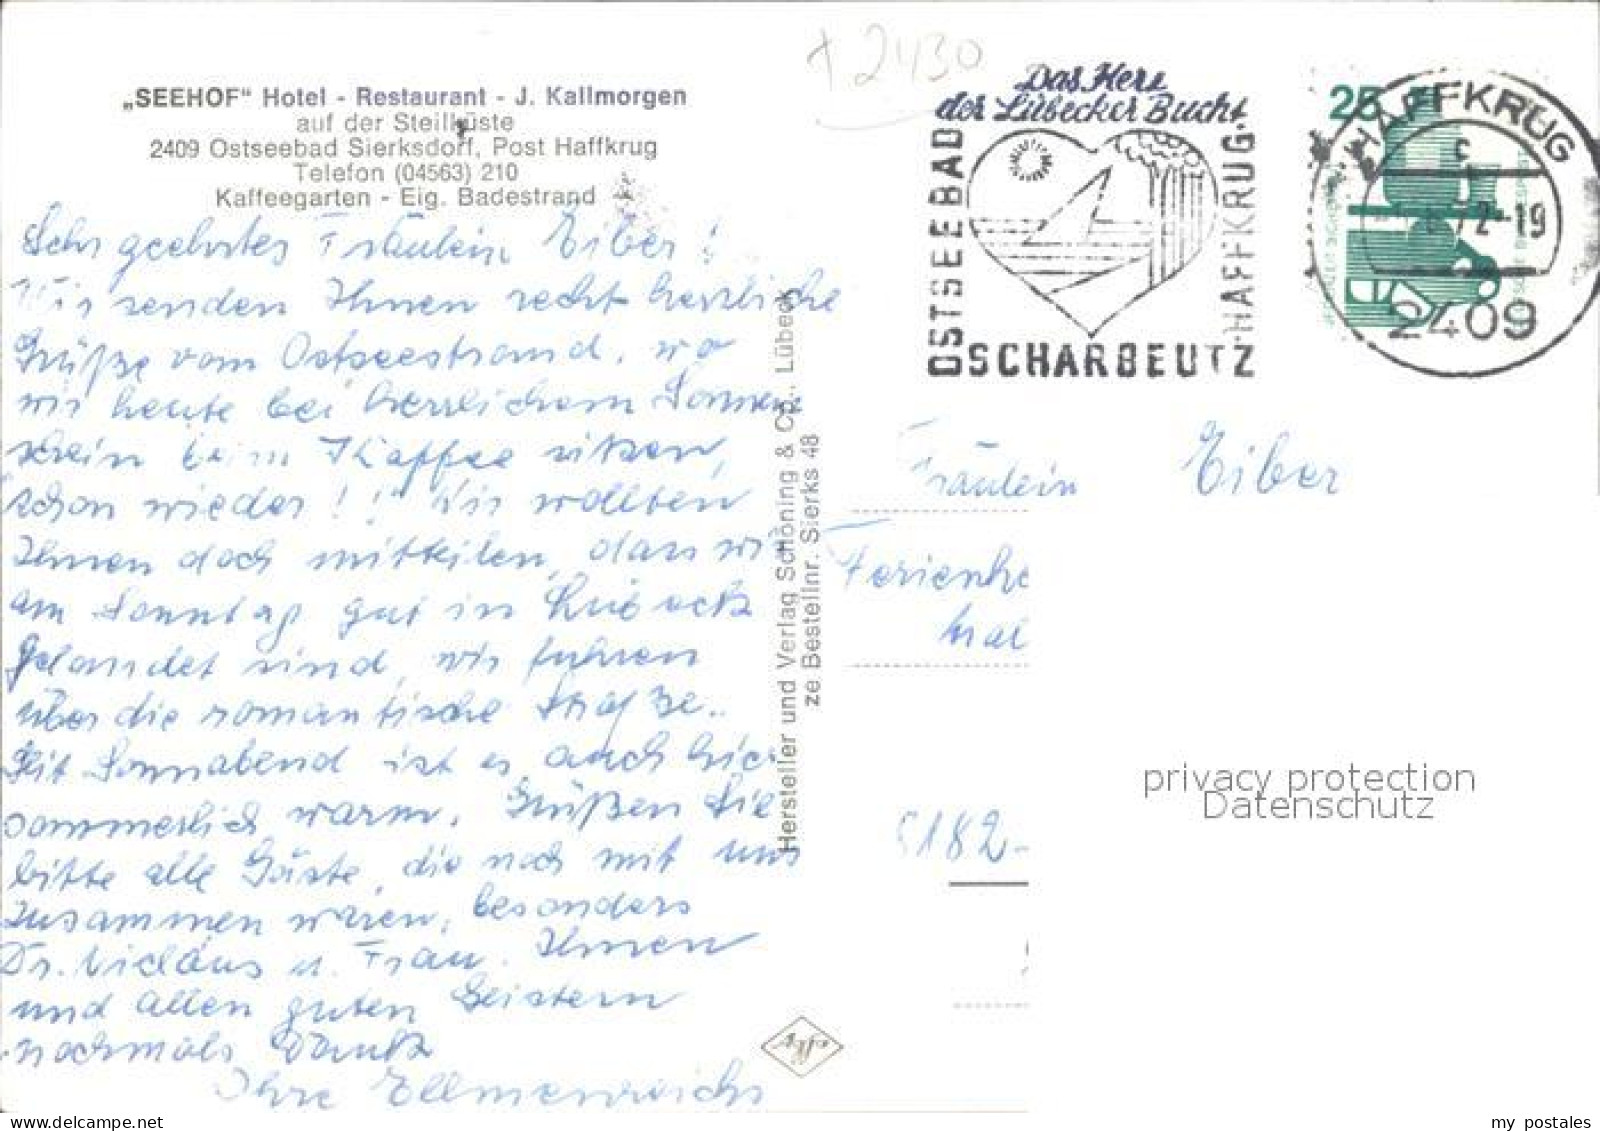 „SEEHOF" Hotel - Restaurant - J. Kallmorgen
auf der Steilküste
2409 Ostseebad Sierksdorf, Post Haffkrug
Telefon (04563) 210
Kaffeegarten - Eig. Badestrand
Sehr geehrtes Fräulein Eiber!
Wir senden Ihnen recht herzliche
Grüße vom Ostseestrand, wo
wir heute bei herrlichem Sonnen
schein beim Kaffee sitzen,
schon wieder!! Wir wollten
Ihnen doch mitteilen, dass wir
am Sonntag gut in Lübeck
gelandet sind, wir fuhren
über die romantische Straße..
Seit Sonnabend ist es auch hier
sommerlich warm. Grüßen Sie
bitte alle Gäste, die noch mit uns
zusammen waren, besonders
Dr. Niclaus u. Frau. Ihnen
und allen guten Geistern
nochmals Dank
Ihre Ellmenreichs
Hersteller und Verlag Schöning & Co., Lübeck
ze Bestellnr. Sierks 48
+ 2430
Das Herz
der Lübecker Bucht
OSTSEEBAD
HAFFKRUG
SCHARBEUTZ
25
HAFFKRUG
c
72-19
2409
Fräulein Eiber
Ferienhe
5182-
privacy protection
Datenschutz
my postales